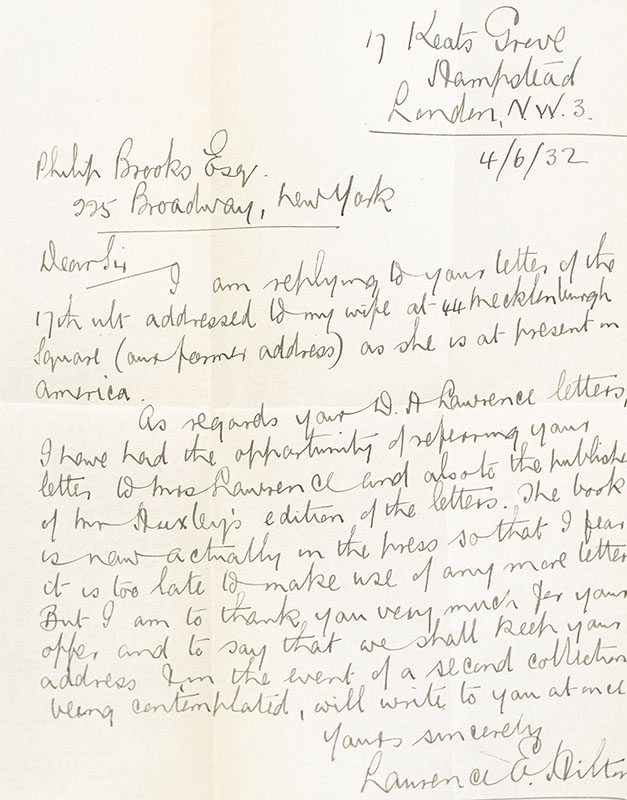 17 Keats Grove
Hampstead
London, N.W. 3.
4/6/32
Philip Brooks Esq.
225 Broadway, New York
Dear Sir
I am replying to your letter of the
17th ult addressed to my wife at 44 Mecklenburgh
Square (our former address) as she is at present in
America.
As regards your D. H Lawrence letters,
I have had the opportunity of referring your
letter to Mrs Lawrence and also to the publishe
of Mr Huxley's edition of the letters. The book
is now actually in the press so that I fear
it is too late to make use of any more letter
But I am to thank you very much for your
offer and to say that we shall keep your
address & in the event of a second collection
being contemplated, will write to you at once
Yours sincerely
Laurence E. Hilton